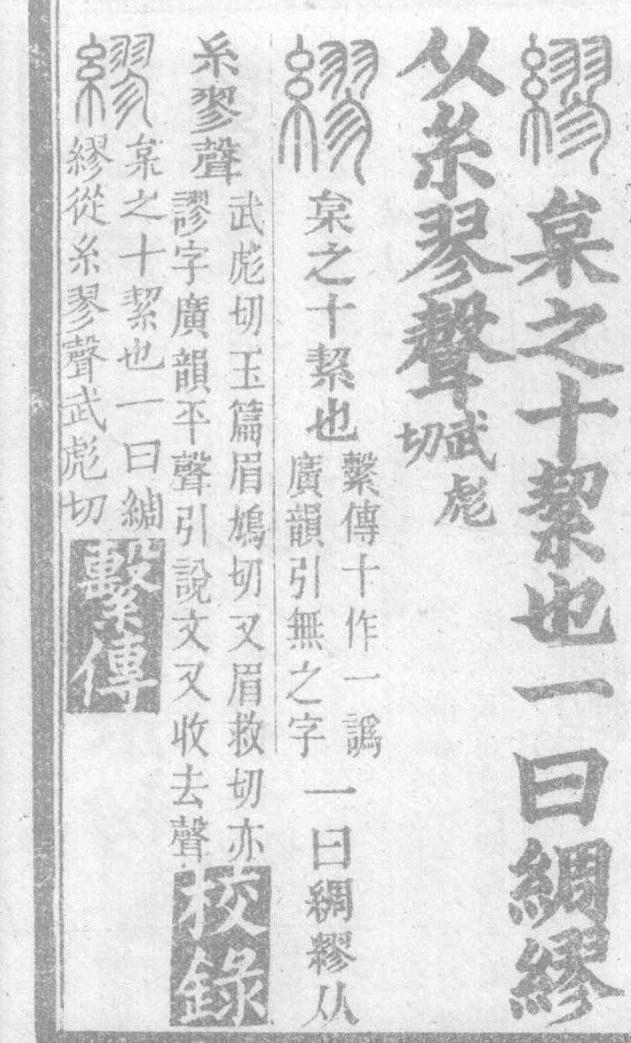 繆枲之十絜也一曰綢繆
从糸翏聲武彪切
繆枲之十絜也繫傳十作一譌廣韻引無之字一曰綢繆从
糸翏聲武彪切玉篇眉鳩切又眉救切亦謬字廣韻平聲引說文又收去聲校錄
繆枲之十絜也一曰綢繆從糸翏聲武彪切繫傳